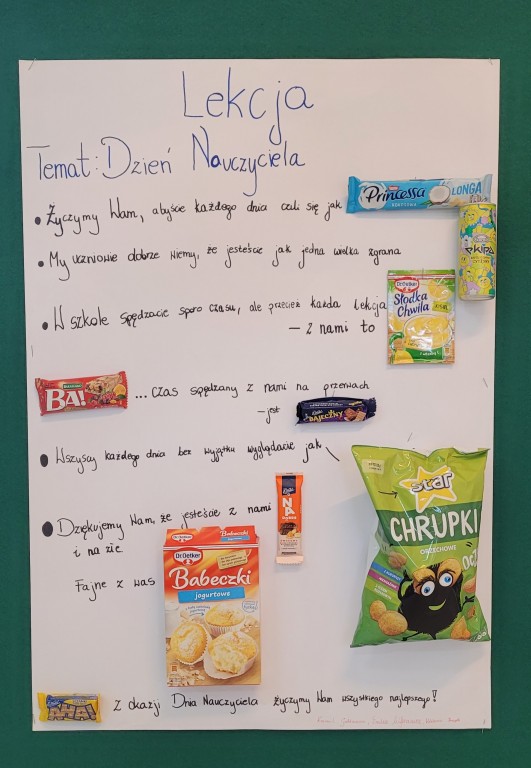 Lekcja
Temat: Dzień Nauczyciela
• Życzymy Wam, abyście każdego dnia czuli się jak
Princessa
KOKOSOWA
LONGA
• My uczniowie dobrze wiemy, że jesteście jak jedna wielka zgrana
ekipa
• W szkole spędzacie sporo czasu, ale przecież każda lekcja
– z nami to
Dr. Oetker
Słodka
Chwila
BA!
... Czas spędzany z nami na przerwach
– jest
BAJECZNY
• Wszyscy każdego dnia bez wyjątku wyglądacie jak
star
CHRUPKI
ORZECHOWE
• Dziękujemy Wam, że jesteście z nami
i na zie
NA
Fajne z was
Dr. Oetker
Babeczki
Babeczki
jogurtowe
Z okazji Dnia Nauczyciela życzymy Wam wszystkiego najlepszego!